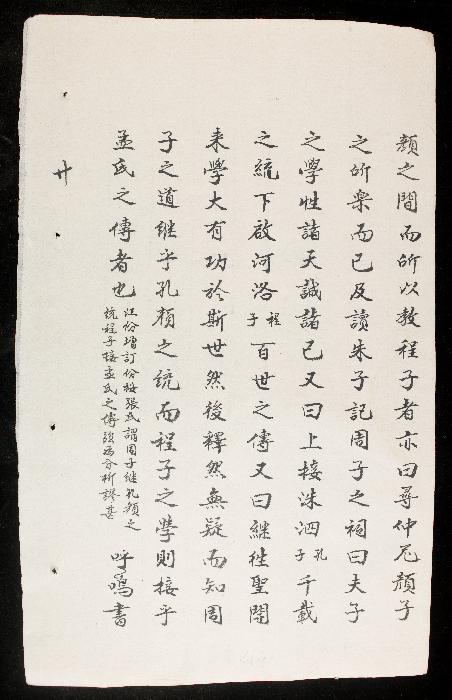 顏之間而所以教程子者亦曰尋仲尼顏子
之所楽而已及讀朱子記周子之祠曰夫子
之學性諸天誠諸己又曰上接洙泗孔子千載
之統下啟河洛程子百世之傳又曰継徃聖開
来學大有功於斯世然後釋然無疑而知周
子之道継乎孔顏之統而程子之學則接乎
孟氏之傳者也
汪份增訂份按張氏謂周子継孔顏之
統程子接孟氏之傳強為分析謬甚
呼鳴書
廿